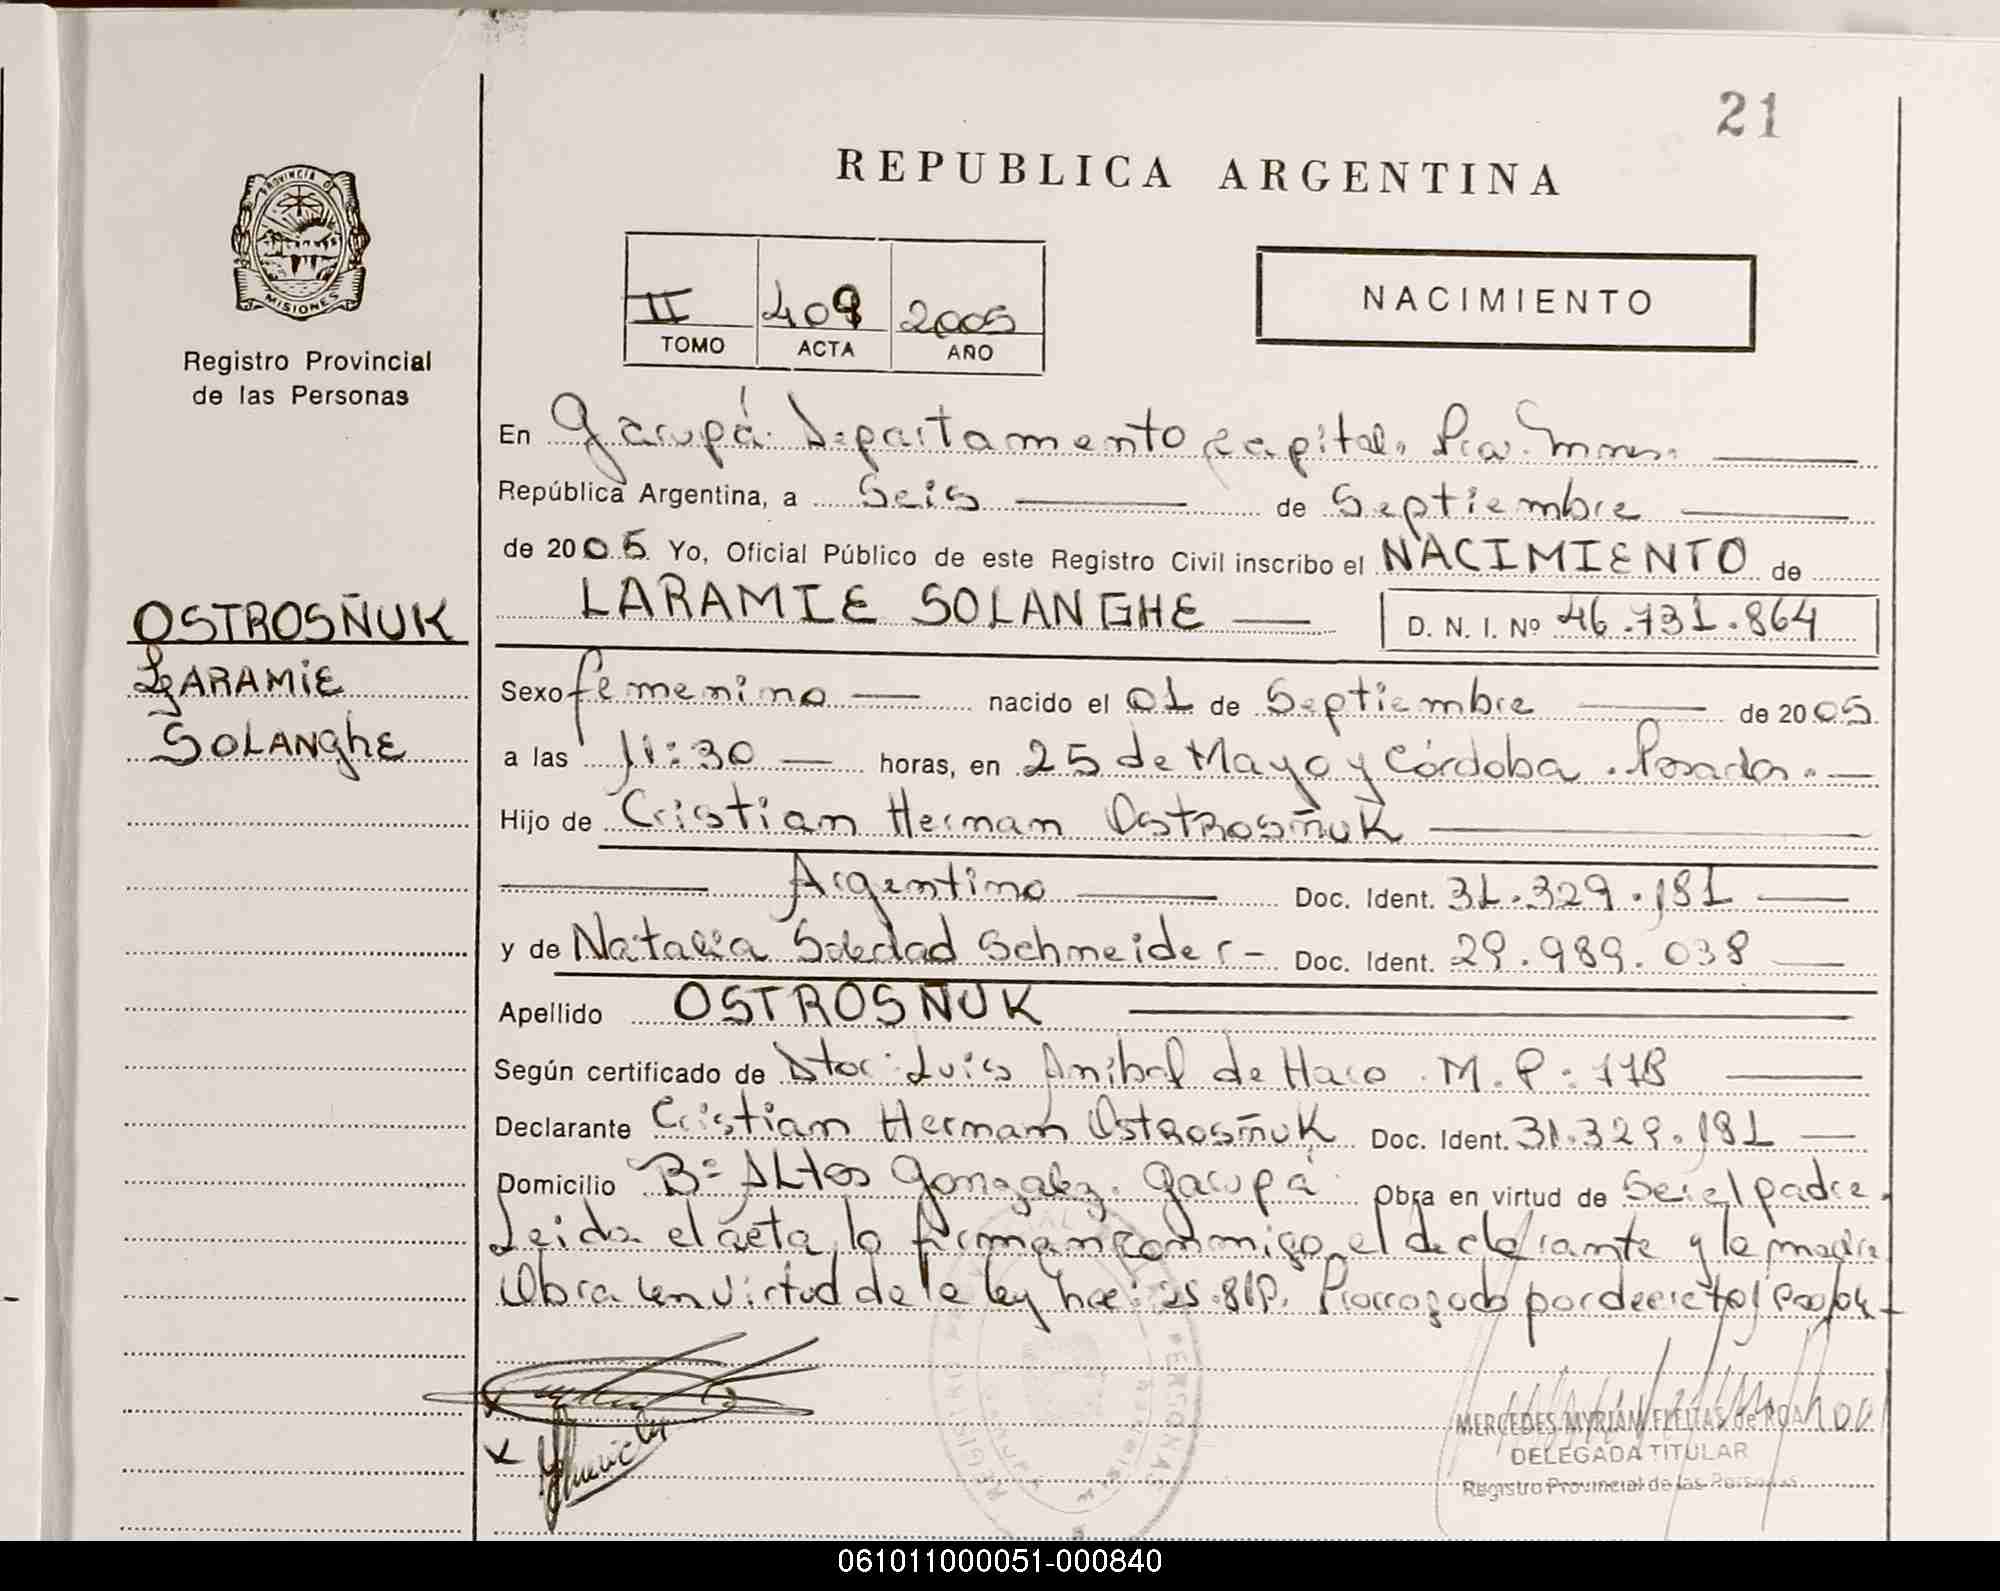 21
REPUBLICA ARGENTINA
PROVINCIA DE
MISIONES
Registro Provincial
de las Personas
II 409 2005
TOMO ACTA AÑO
NACIMIENTO
En Garupá. Departamento Capital. Pcia. Mnes.
República Argentina, a Seis de Septiembre
de 2005 Yo, Oficial Público de este Registro Civil inscribo el NACIMIENTO de
LARAMIE SOLANGHE D. N. I. Nº 46.731.864
OSTROSÑUK
LARAMIE
SOLANGHE
Sexo femenino nacido el 01 de Septiembre de 2005
a las 11:30 horas, en 25 de Mayo y Córdoba. Posadas.
Hijo de Cristian Hernan Ostrosñuk
Argentino Doc. Ident. 31.329.181
y de Natalia Soledad Schneider - Doc. Ident. 29.989.038
Apellido OSTROSÑUK
Según certificado de Dtor: Luis Anibal de Haro M.P: 178
Declarante Cristian Hernan Ostrosñuk Doc. Ident. 31.329.181
Domicilio Bº Altos Gonzalez. Garupá Obra en virtud de Ser el padre.
Leida el acta, la firman conmigo, el declarante y la madre
Obra en virtud de la ley nro: 25.819. Prorrogado por decreto
MERCEDES MYRIAM FLEITAS de ROA
DELEGADA TITULAR
Registro Provincial de las Personas
061011000051-000840